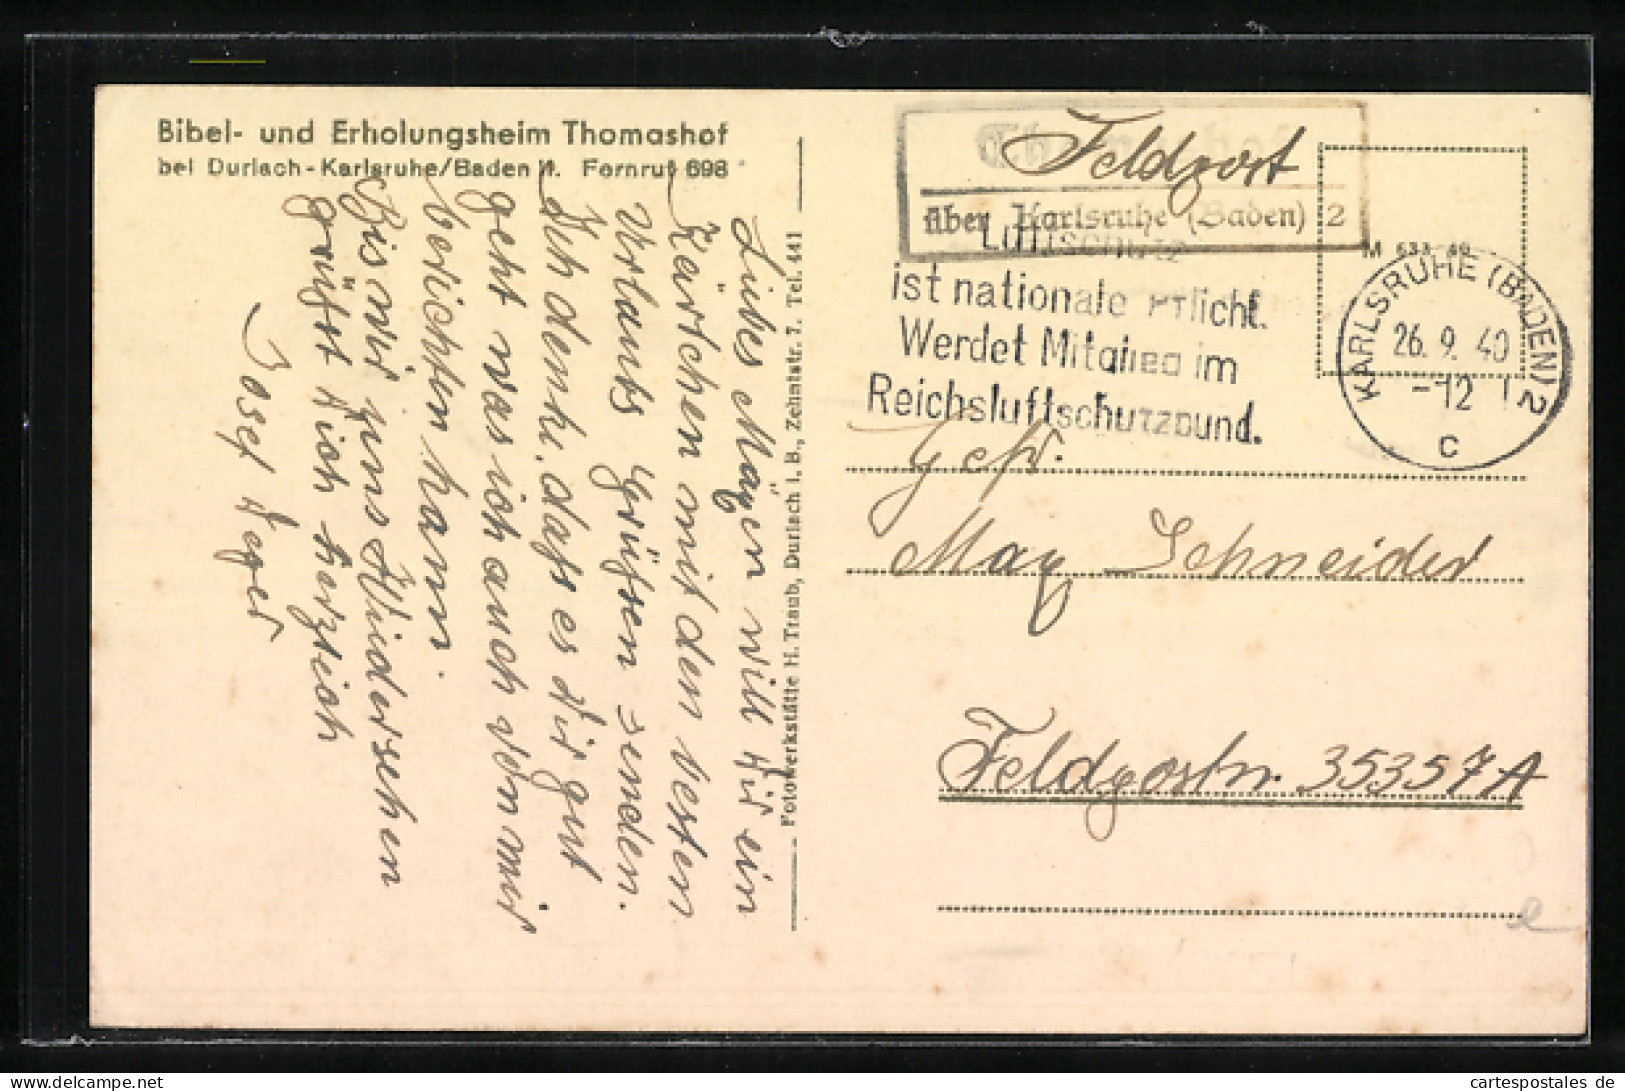 Bibel- und Erholungsheim Thomashof
bei Durlach-Karlsruhe/Baden Fernruf 698
Feldpost
über Karlsruhe (Baden) 2
Luftschutz
ist nationale Pflicht.
Werdet Mitglied im
Reichsluftschutzbund.
M 633 40
KARLSRUHE (BADEN) 2
26. 9. 40
-12
c
Liebes will Dir ein
Kärtchen mit den besten
Urlaubs Grüßen senden.
Ich denke, daß es Dir gut
geht was ich auch von mir
berichten kann.
Bis wir uns Wiedersehen
grüßt Dich herzlich
Josef
Fotowerkstätte H. Traub, Durlach i. B., Zehntstr. 7. Tel. 441
Gefr.
Schneider
Feldpostnr. 35357A
e
cartespostales de